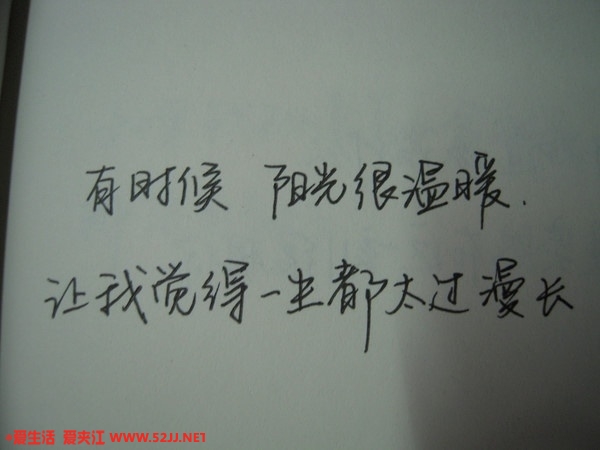 有时候 阳光很温暖.
让我觉得一生都太过漫长
·爱生活 爱夹江 WWW.52JJ.NET